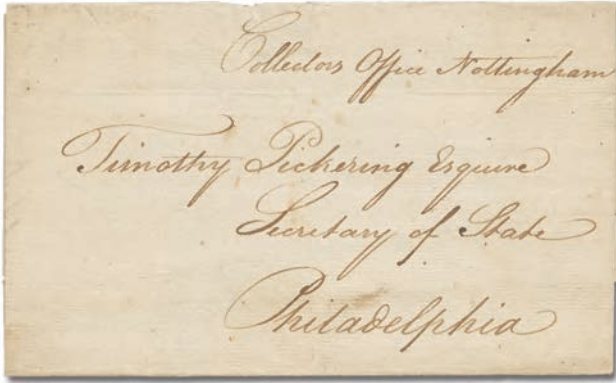 Collectors Office Nottingham
Timothy Pickering Esquire
Secretary of State
Philadelphia